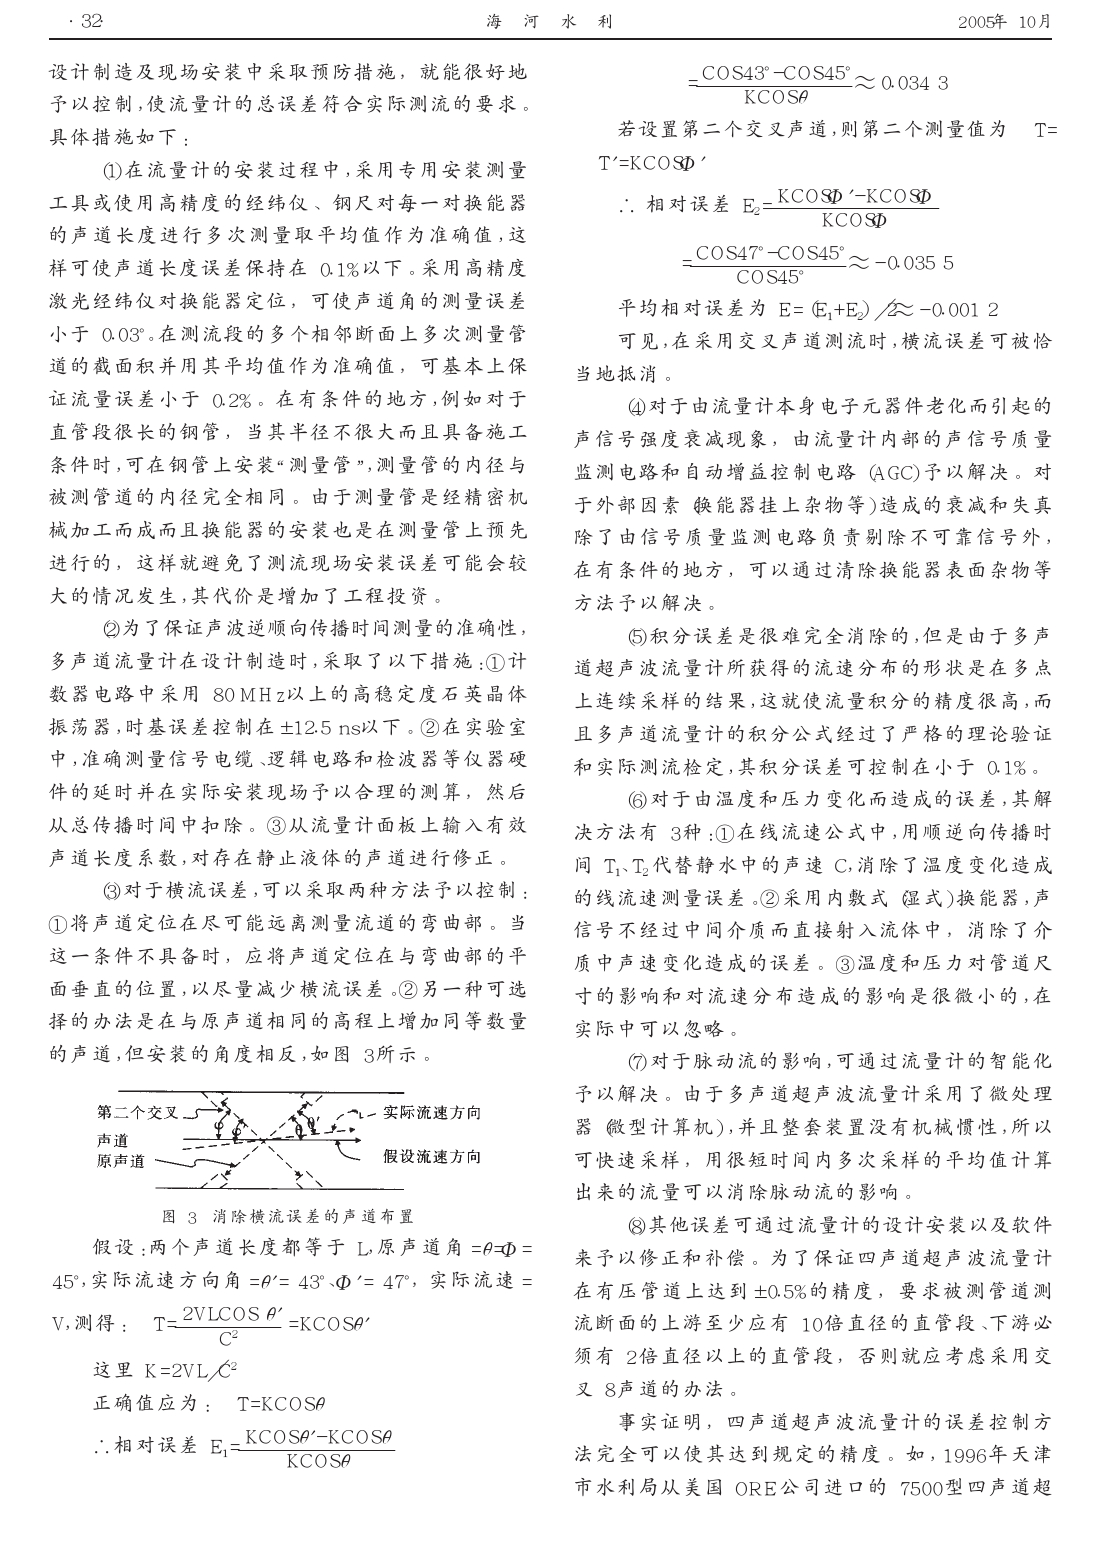 · 32·
海 河 水 利
2005年 10月
设计制造及现场安装中采取预防措施，就能很好地
予以控制，使流量计的总误差符合实际测流的要求。
具体措施如下：
①在流量计的安装过程中，采用专用安装测量
工具或使用高精度的经纬仪、钢尺对每一对换能器
的声道长度进行多次测量取平均值作为准确值，这
样可使声道长度误差保持在 0.1%以下。采用高精度
激光经纬仪对换能器定位，可使声道角的测量误差
小于 0.03°。在测流段的多个相邻断面上多次测量管
道的截面积并用其平均值作为准确值，可基本上保
证流量误差小于 0.2%。在有条件的地方，例如对于
直管段很长的钢管，当其半径不很大而且具备施工
条件时，可在钢管上安装“测量管”，测量管的内径与
被测管道的内径完全相同。由于测量管是经精密机
械加工而成而且换能器的安装也是在测量管上预先
进行的，这样就避免了测流现场安装误差可能会较
大的情况发生，其代价是增加了工程投资。
②为了保证声波逆顺向传播时间测量的准确性，
多声道流量计在设计制造时，采取了以下措施：①计
数器电路中采用 80 MHz以上的高稳定度石英晶体
振荡器，时基误差控制在 ±12.5 ns以下。②在实验室
中，准确测量信号电缆、逻辑电路和检波器等仪器硬
件的延时并在实际安装现场予以合理的测算，然后
从总传播时间中扣除。③从流量计面板上输入有效
声道长度系数，对存在静止液体的声道进行修正。
③对于横流误差，可以采取两种方法予以控制：
①将声道定位在尽可能远离测量流道的弯曲部。当
这一条件不具备时，应将声道定位在与弯曲部的平
面垂直的位置，以尽量减少横流误差。②另一种可选
择的办法是在与原声道相同的高程上增加同等数量
的声道，但安装的角度相反，如图 3所示。
第二个交叉
声道
原声道
φ′ φ θ θ′
实际流速方向
假设流速方向
图 3 消除横流误差的声道布置
假设：两个声道长度都等于 L，原声道角 =θ=Φ=
45°，实际流速方向角 =θ′= 43°、Φ′= 47°，实际流速 =
V，测得： T=2VLCOS θ′/C² =KCOSθ′
这里 K=2VL/C²
正确值应为： T=KCOSθ
∴相对误差 E₁=KCOSθ′-KCOSθ/KCOSθ
=COS43°-COS45°/KCOSθ ≈ 0.034 3
若设置第二个交叉声道，则第二个测量值为 T=
T′=KCOSΦ′
∴ 相对误差 E₂=KCOSΦ′-KCOSΦ/KCOSΦ
=COS47°-COS45°/COS45° ≈ -0.035 5
平均相对误差为 E=(E₁+E₂)/2≈ -0.001 2
可见，在采用交叉声道测流时，横流误差可被恰
当地抵消。
④对于由流量计本身电子元器件老化而引起的
声信号强度衰减现象，由流量计内部的声信号质量
监测电路和自动增益控制电路 (AGC)予以解决。对
于外部因素(换能器挂上杂物等)造成的衰减和失真
除了由信号质量监测电路负责剔除不可靠信号外，
在有条件的地方，可以通过清除换能器表面杂物等
方法予以解决。
⑤积分误差是很难完全消除的，但是由于多声
道超声波流量计所获得的流速分布的形状是在多点
上连续采样的结果，这就使流量积分的精度很高，而
且多声道流量计的积分公式经过了严格的理论验证
和实际测流检定，其积分误差可控制在小于 0.1%。
⑥对于由温度和压力变化而造成的误差，其解
决方法有 3种：①在线流速公式中，用顺逆向传播时
间 T₁、T₂代替静水中的声速 C，消除了温度变化造成
的线流速测量误差。②采用内敷式(湿式)换能器，声
信号不经过中间介质而直接射入流体中，消除了介
质中声速变化造成的误差。③温度和压力对管道尺
寸的影响和对流速分布造成的影响是很微小的，在
实际中可以忽略。
⑦对于脉动流的影响，可通过流量计的智能化
予以解决。由于多声道超声波流量计采用了微处理
器(微型计算机)，并且整套装置没有机械惯性，所以
可快速采样，用很短时间内多次采样的平均值计算
出来的流量可以消除脉动流的影响。
⑧其他误差可通过流量计的设计安装以及软件
来予以修正和补偿。为了保证四声道超声波流量计
在有压管道上达到 ±0.5%的精度，要求被测管道测
流断面的上游至少应有 10倍直径的直管段、下游必
须有 2倍直径以上的直管段，否则就应考虑采用交
叉 8声道的办法。
事实证明，四声道超声波流量计的误差控制方
法完全可以使其达到规定的精度。如，1996年天津
市水利局从美国 ORE公司进口的 7500型四声道超